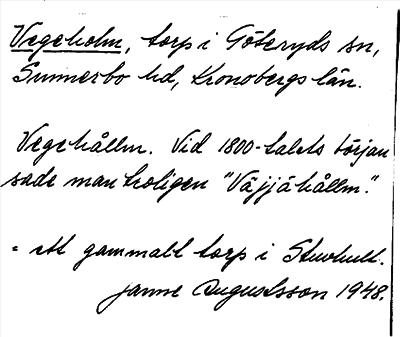 Vegeholm, torp i Göteryds sn,
Sunnerbo hd, Kronobergs län.
Vegehållm. Vid 1800-talets början
sade man troligen "Väjjähållm".
= ett gammalt torp i Stuvhult.
Janne Augustsson 1948.